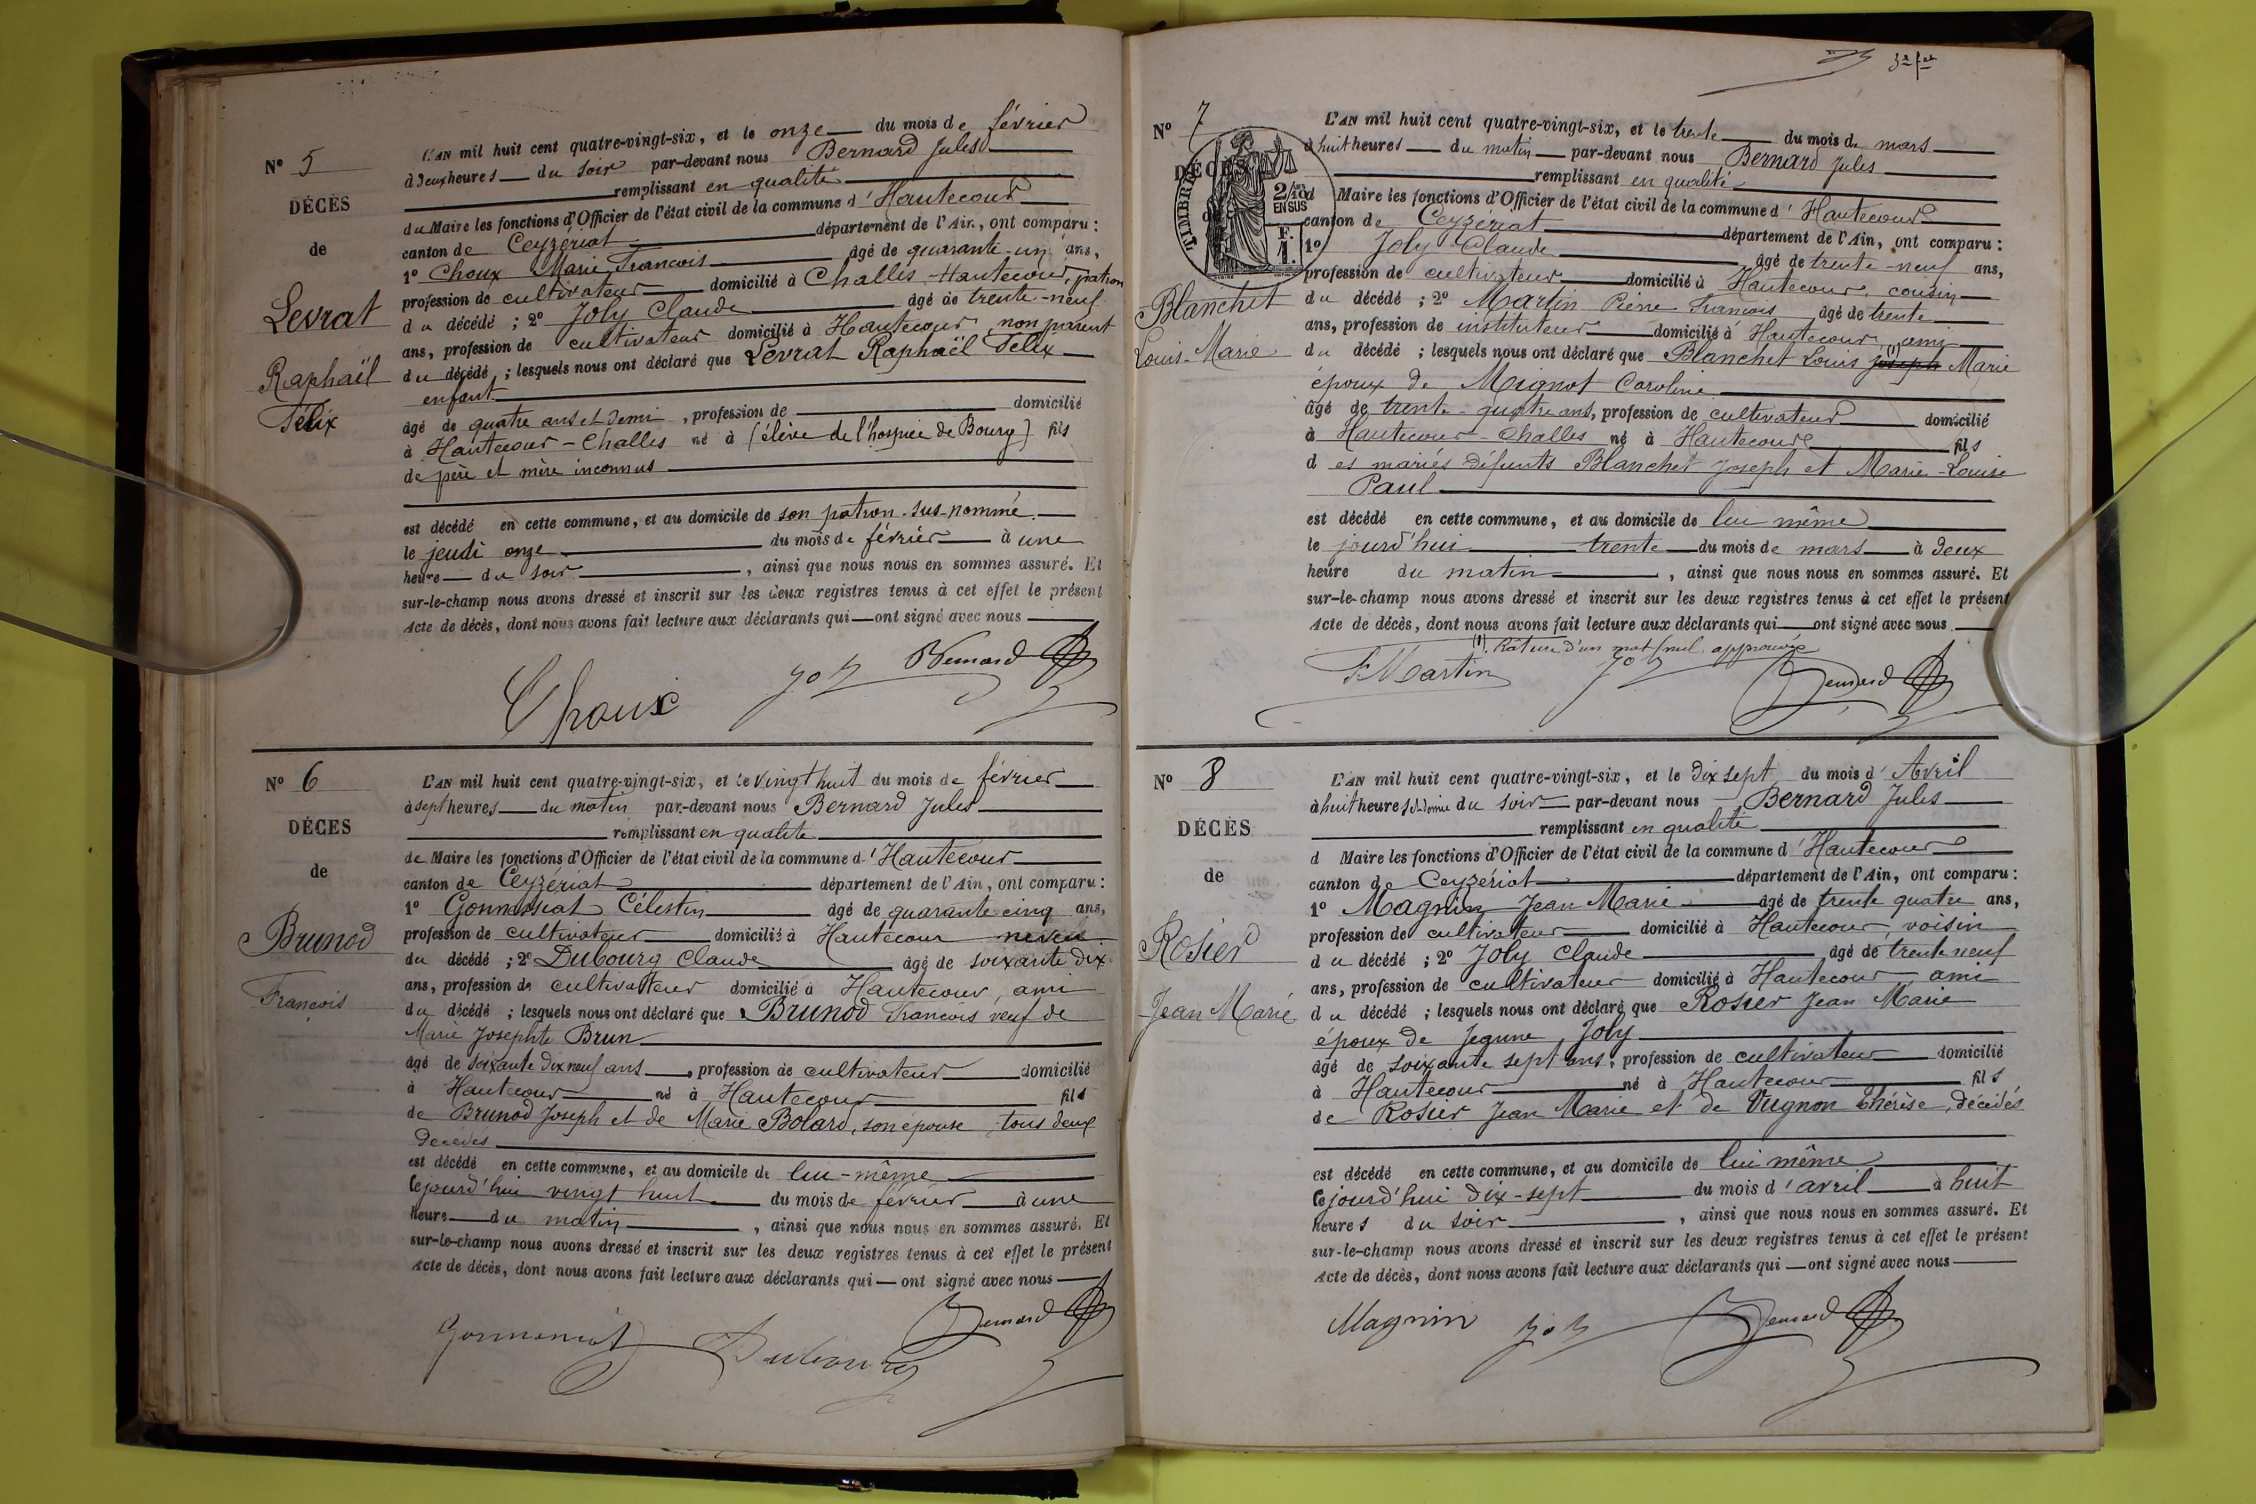 N° 5
DÉCÈS
de
Levrat
Raphaël
Félix
L'AN mil huit cent quatre-vingt-six, et le onze du mois de février
à deux heures du soir par-devant nous Bernard Jules
remplissant en qualité
du Maire les fonctions d'Officier de l'état civil de la commune d'Hautecour
canton de Ceyzériat département de l'Ain, ont comparu :
1° Choux Marie François âgé de quarante-un ans,
profession de cultivateur domicilié à Challes-Hautecour, patron
du décédé ; 2° Joly Claude âgé de trente-neuf
ans, profession de cultivateur domicilié à Hautecour, non parent
du décédé ; lesquels nous ont déclaré que Levrat Raphaël Félix
enfant
âgé de quatre ans et demi, profession de domicilié
à Hautecour-Challes né à (élève de l'hospice de Bourg) fils
de père et mère inconnus
est décédé en cette commune, et au domicile de son patron sus-nommé.
le jeudi onze du mois de février à une
heure du soir, ainsi que nous nous en sommes assuré. Et
sur-le-champ nous avons dressé et inscrit sur les deux registres tenus à cet effet le présent
Acte de décès, dont nous avons fait lecture aux déclarants qui ont signé avec nous
Choux Joly Bernard
N° 6
DÉCÈS
de
Brunod
François
L'AN mil huit cent quatre-vingt-six, et le vingt huit du mois de février
à sept heures du matin par-devant nous Bernard Jules
remplissant en qualité
de Maire les fonctions d'Officier de l'état civil de la commune d'Hautecour
canton de Ceyzériat département de l'Ain, ont comparu :
1° Gonnessiat Célestin âgé de quarante cinq ans,
profession de cultivateur domicilié à Hautecour neveu
du décédé ; 2° Dubourg Claude âgé de soixante dix
ans, profession de cultivateur domicilié à Hautecour, ami
du décédé ; lesquels nous ont déclaré que Brunod François veuf de
Marie Josephte Brun
âgé de soixante dix neuf ans, profession de cultivateur domicilié
à Hautecour né à Hautecour fils
de Brunod Joseph et de Marie Bolard, son épouse, tous deux
décédés
est décédé en cette commune, et au domicile de lui-même
Cejourd'hui vingt huit du mois de février à une
heure du matin, ainsi que nous nous en sommes assuré. Et
sur-le-champ nous avons dressé et inscrit sur les deux registres tenus à cet effet le présent
Acte de décès, dont nous avons fait lecture aux déclarants qui ont signé avec nous
Gonnessiat Dubourg Bernard
N° 7
DÉCÈS
TIMBRE
2/10 EN SUS
F. 1.
Blanchet
Louis-Marie
L'AN mil huit cent quatre-vingt-six, et le trente du mois de mars
à huit heures du matin par-devant nous Bernard Jules
remplissant en qualité
d Maire les fonctions d'Officier de l'état civil de la commune d'Hautecour
canton de Ceyzériat département de l'Ain, ont comparu :
1° Joly Claude âgé de trente-neuf ans,
profession de cultivateur domicilié à Hautecour, cousin
du décédé ; 2° Martin Pierre François âgé de trente
ans, profession de instituteur domicilié à Hautecour, ami
du décédé ; lesquels nous ont déclaré que Blanchet Louis (1) joseph Marie
époux de Mignot Caroline
âgé de trente-quatre ans, profession de cultivateur domicilié
à Hautecour-Challes né à Hautecour fils
des mariés défunts Blanchet Joseph et Marie-Louise
Paul
est décédé en cette commune, et au domicile de lui même
le jourd'hui trente du mois de mars à deux
heure du matin, ainsi que nous nous en sommes assuré. Et
sur-le-champ nous avons dressé et inscrit sur les deux registres tenus à cet effet le présent
Acte de décès, dont nous avons fait lecture aux déclarants qui ont signé avec nous
(1) Rature d'un mot nul approuvée
F Martin Joly Bernard
N° 8
DÉCÈS
de
Rosier
Jean Marie
L'AN mil huit cent quatre-vingt-six, et le dix sept du mois d'Avril
à huit heures et demie du soir par-devant nous Bernard Jules
remplissant en qualité
d Maire les fonctions d'Officier de l'état civil de la commune d'Hautecour
canton de Ceyzériat département de l'Ain, ont comparu :
1° Magnin Jean Marie âgé de trente quatre ans,
profession de cultivateur domicilié à Hautecour, voisin
du décédé ; 2° Joly Claude âgé de trente neuf
ans, profession de cultivateur domicilié à Hautecour, ami
du décédé ; lesquels nous ont déclaré que Rosier Jean Marie
époux de Jeanne Joly
âgé de soixante sept ans, profession de cultivateur domicilié
à Hautecour né à Hautecour fils
de Rosier Jean Marie et de Vugnon Thérèse, décédés
est décédé en cette commune, et au domicile de lui même
Cejourd'hui dix-sept du mois d'avril à huit
heures du soir, ainsi que nous nous en sommes assuré. Et
sur-le-champ nous avons dressé et inscrit sur les deux registres tenus à cet effet le présent
Acte de décès, dont nous avons fait lecture aux déclarants qui ont signé avec nous
Magnin Joly Bernard